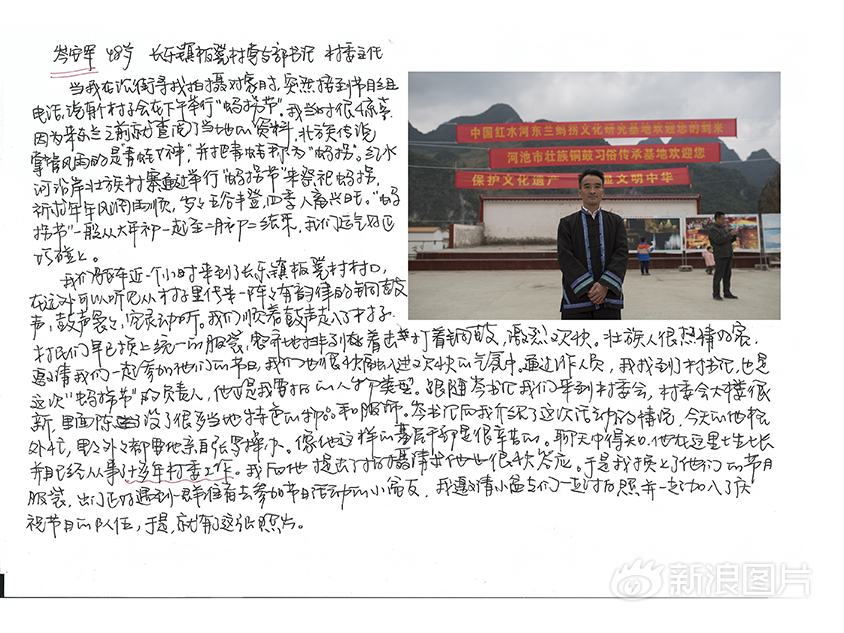 岑安军 48岁 长乐镇板凳村党支部书记 村委主任
当我在沿街寻找拍摄对象时，突然接到节目组
电话，说有个村子会在下午举行"蚂拐节"。我当时很惊喜
因为来东兰之前就查阅了当地的资料，壮族传说
掌管风雨的是"青蛙女神"，并把青蛙称为"蚂拐"。红水
河沿岸壮族村寨通过举行"蚂拐节"来祭祀蚂拐，
祈求年年风调雨顺，岁岁五谷丰登，四季人畜兴旺。"蚂
拐节"一般从大年初一起至二月初二结束，我们运气好正
巧碰上。
我们驱车近一个小时来到了长乐镇板凳村村口，
在这外可以听见从村子里传来一阵阵有韵律的铜鼓
声，鼓声袅袅，空灵动听。我们顺着鼓声走入了村子，
村民们早已换上统一的服装，整齐地排列敲着击打着铜鼓，激烈欢快。壮族人很热情好客，
邀请我们一起参加他们的节日，我们也很快融入进欢快的气氛中。通过工作人员，我找到了村书记，也是
这次"蚂拐节"的负责人，他正是我要拍的人物类型。跟随岑书记我们来到村委会，村委会大楼很
新，里面陈设了很多当地特色的物品和服饰。岑书记向我介绍了这次活动的情况，今天的他格
外忙，里里外外都要他亲自张罗操办。像他这样的基层干部是很辛苦的。聊天中得知，他在这里土生土长
并且已经从事了十多年村委工作。我向他提出了拍摄请求他也很快答应。于是我换上了他们的节日
服装，出门正好遇到一群准备去参加节日活动的小朋友，我邀请小盆友们一起过拍照并一起加入了庆
祝节日的队伍，于是，就有了这张照片。
中国红水河东兰蚂拐文化研究基地欢迎您的到来
河池市壮族铜鼓习俗传承基地欢迎您
保护文化遗产 显文明中华
新浪图片